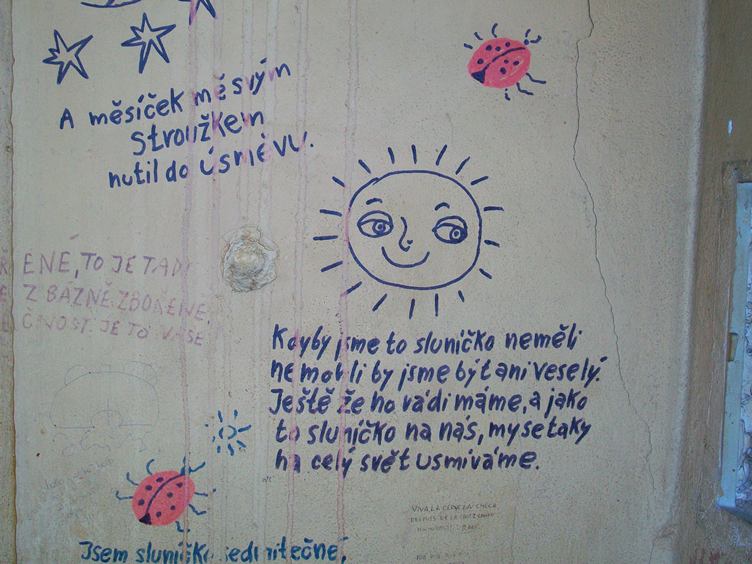 A měsíček měsvým
stroužkem
nutil do úsměvu.
ENÉ, TO JE TADY
Z BÁZNĚ ZBOŘENÉ,
ČNOST. JE TO VAŠE
Kdyby jsme to sluníčko neměli
nemohli by jsme být ani veselý.
Ještě že ho rádi máme, a jako
to sluníčko na nás, my se taky
na celý svět usmíváme.
VIVA LA CERVEZA CHECA
Jsem sluníčko jedinečné,